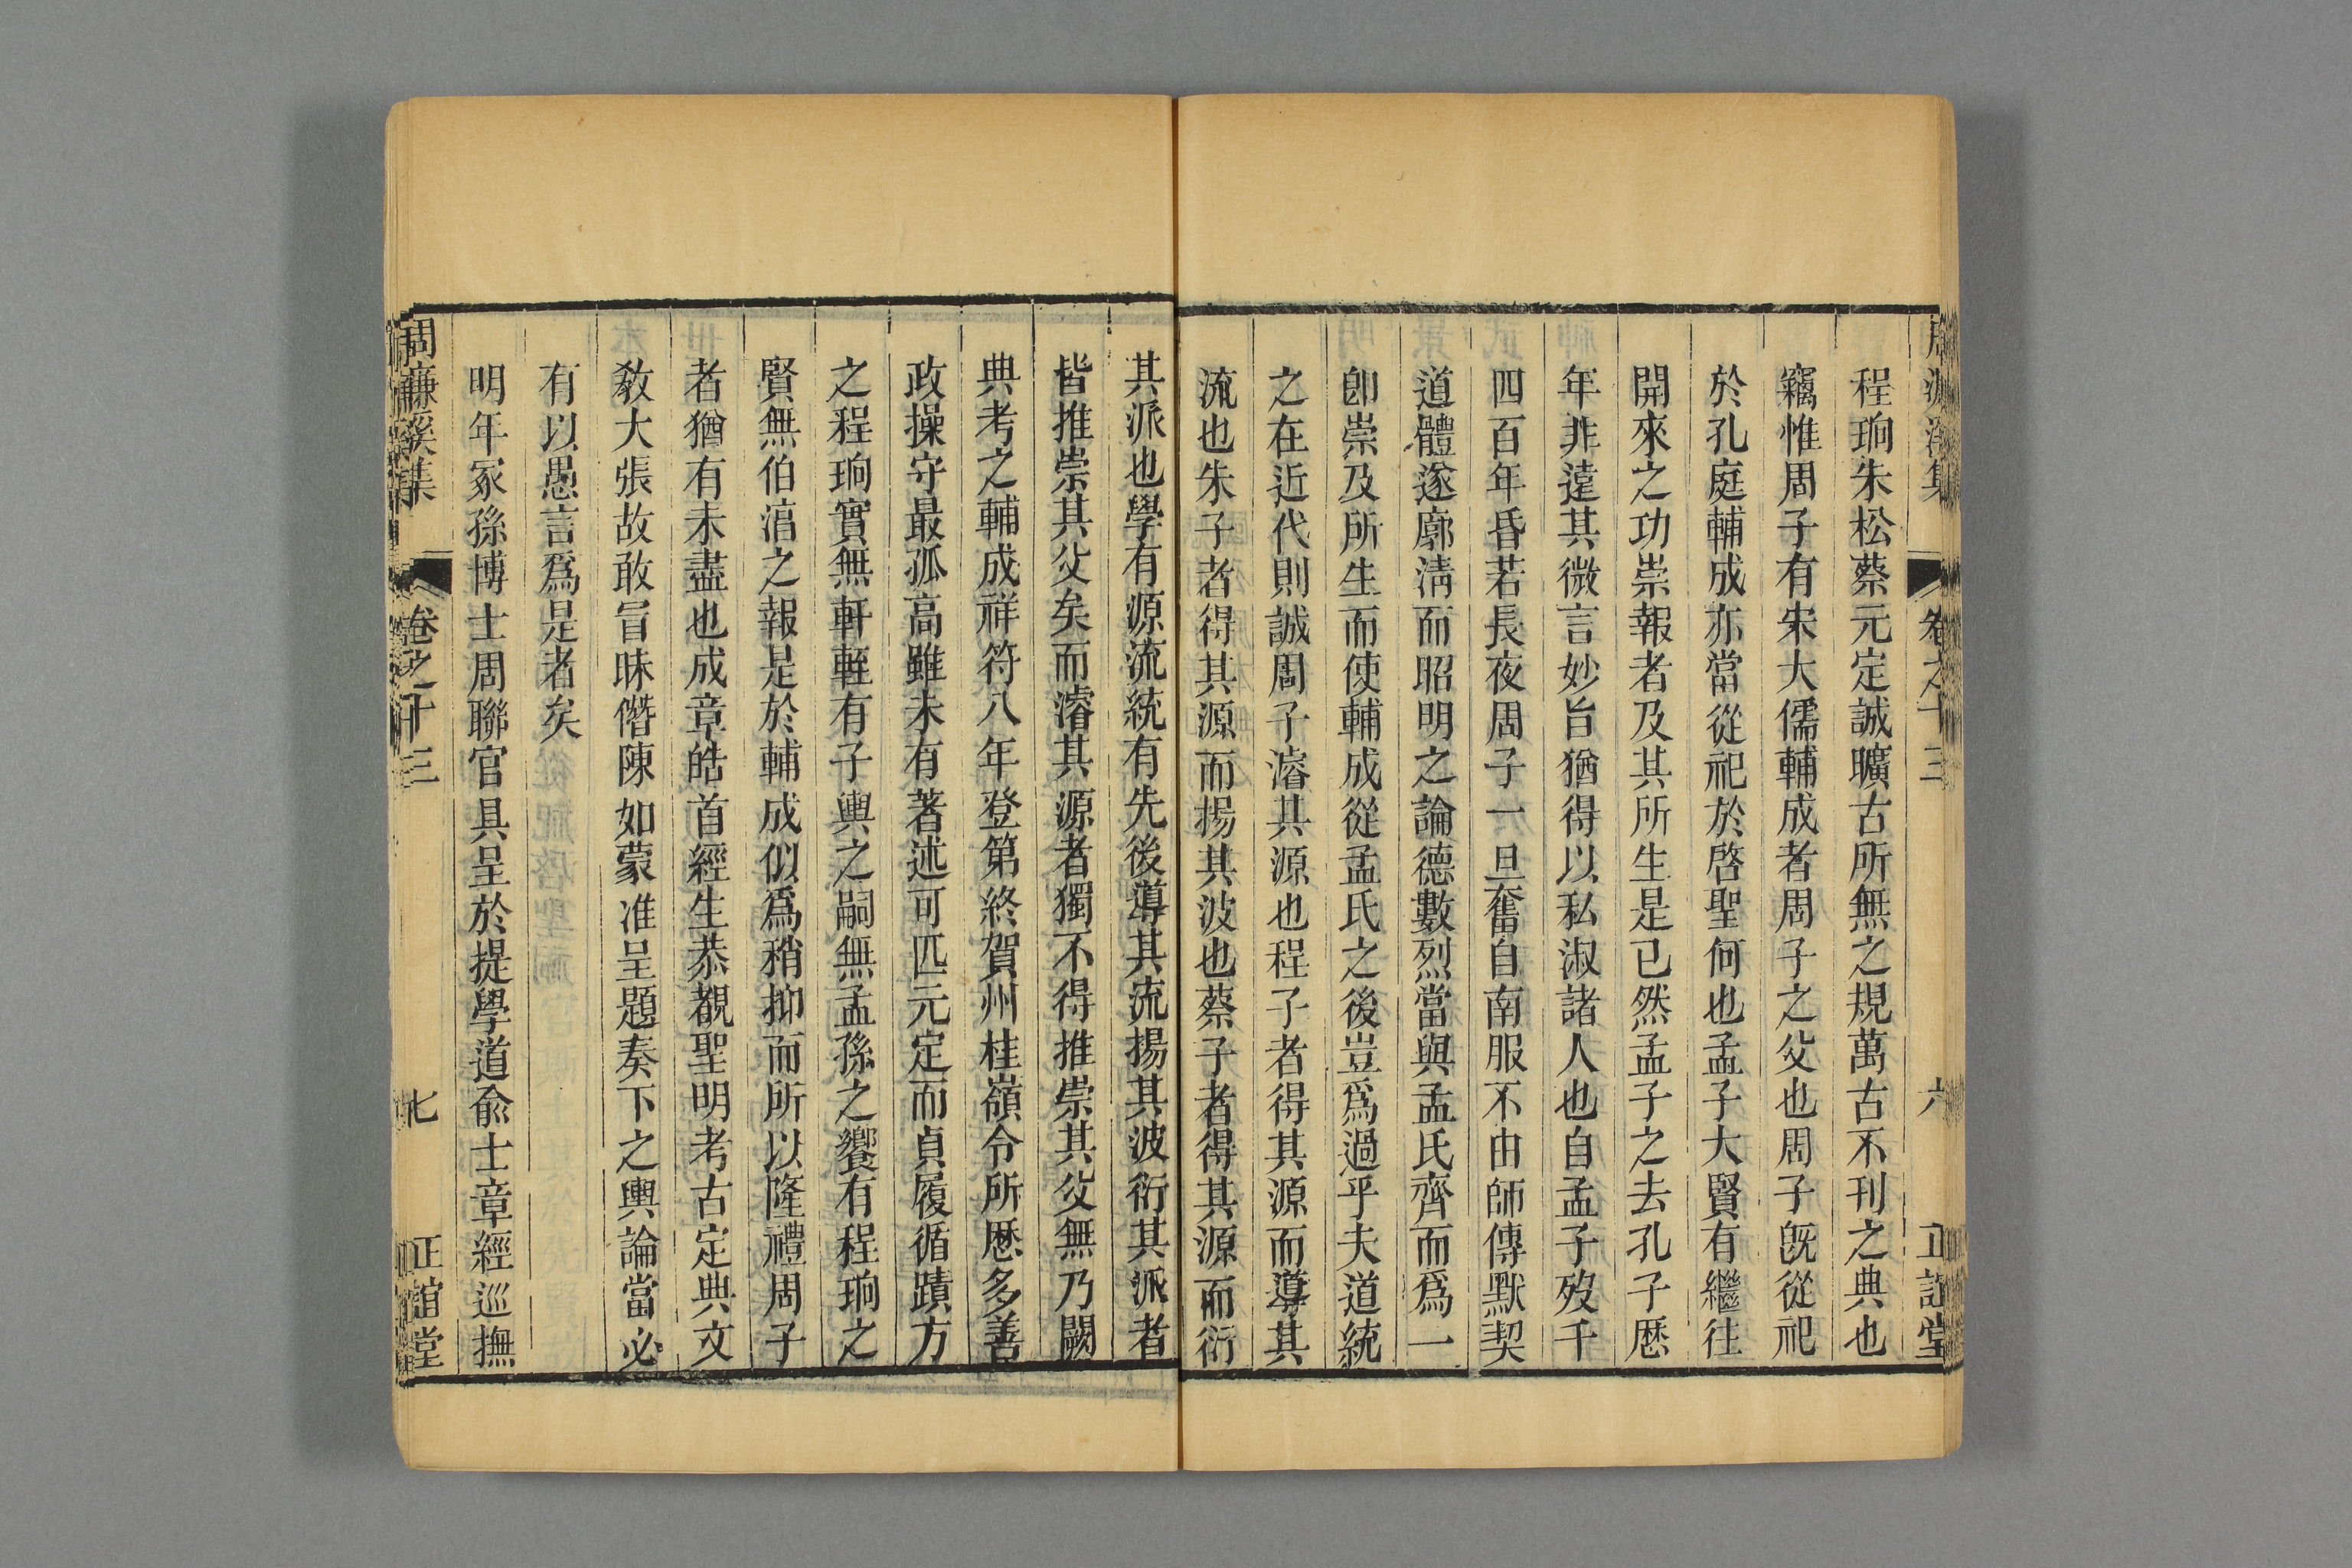 程珦朱松蔡元定誠曠古所無之規萬古不刊之典也
竊惟周子有宋大儒輔成者周子之父也周子旣從祀
於孔庭輔成亦當從祀於啓聖何也孟子大賢有繼往
開來之功崇報者及其所生是已然孟子之去孔子歷
年非遠其微言妙旨猶得以私淑諸人也自孟子歿千
四百年昏若長夜周子一旦奮自南服不由師傳默契
道體遂廓淸而昭明之論德數烈當與孟氏齊而爲一
卽崇及所生而使輔成從孟氏之後豈爲過乎夫道統
之在近代則誠周子濬其源也程子者得其源而導其
流也朱子者得其源而揚其波也蔡子者得其源而衍
其派也學有源流統有先後導其流揚其波衍其派者
皆推崇其父矣而濬其源者獨不得推崇其父無乃闕
典考之輔成祥符八年登第終賀州桂嶺令所歷多善
政操守最孤高雖未有著述可匹元定而貞履循蹟方
之程珦實無軒輊有子輿之嗣無孟孫之饗有程珦之
賢無伯淳之報是於輔成似爲稍抑而所以隆禮周子
者猶有未盡也成章皓首經生恭覩聖明考古定典文
敎大張故敢冒昧僭陳如蒙准呈題奏下之輿論當必
有以愚言爲是者矣
明年冢孫博士周聯官具呈於提學道俞士章經巡撫
周濂溪集 卷之十三 七 正誼堂